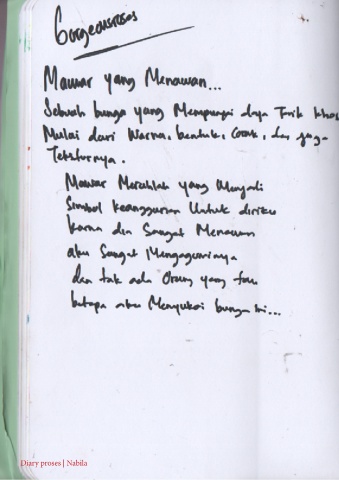 Gorgeousroses
Mawar yang Menawan...
Sebuah bunga yang Mempunyai daya Tarik khas
Mulai dari Warna, bentuk, Corak, dan juga
Teksturnya.
Mawar Merahlah yang Menjadi
Simbol keanggunan Untuk diriku
karna dia Sangat Menawan
aku Sangat Mengaguminya
dan tak ada Orang yang tau
betapa aku Menyukai bunga ini...
Diary proses | Nabila